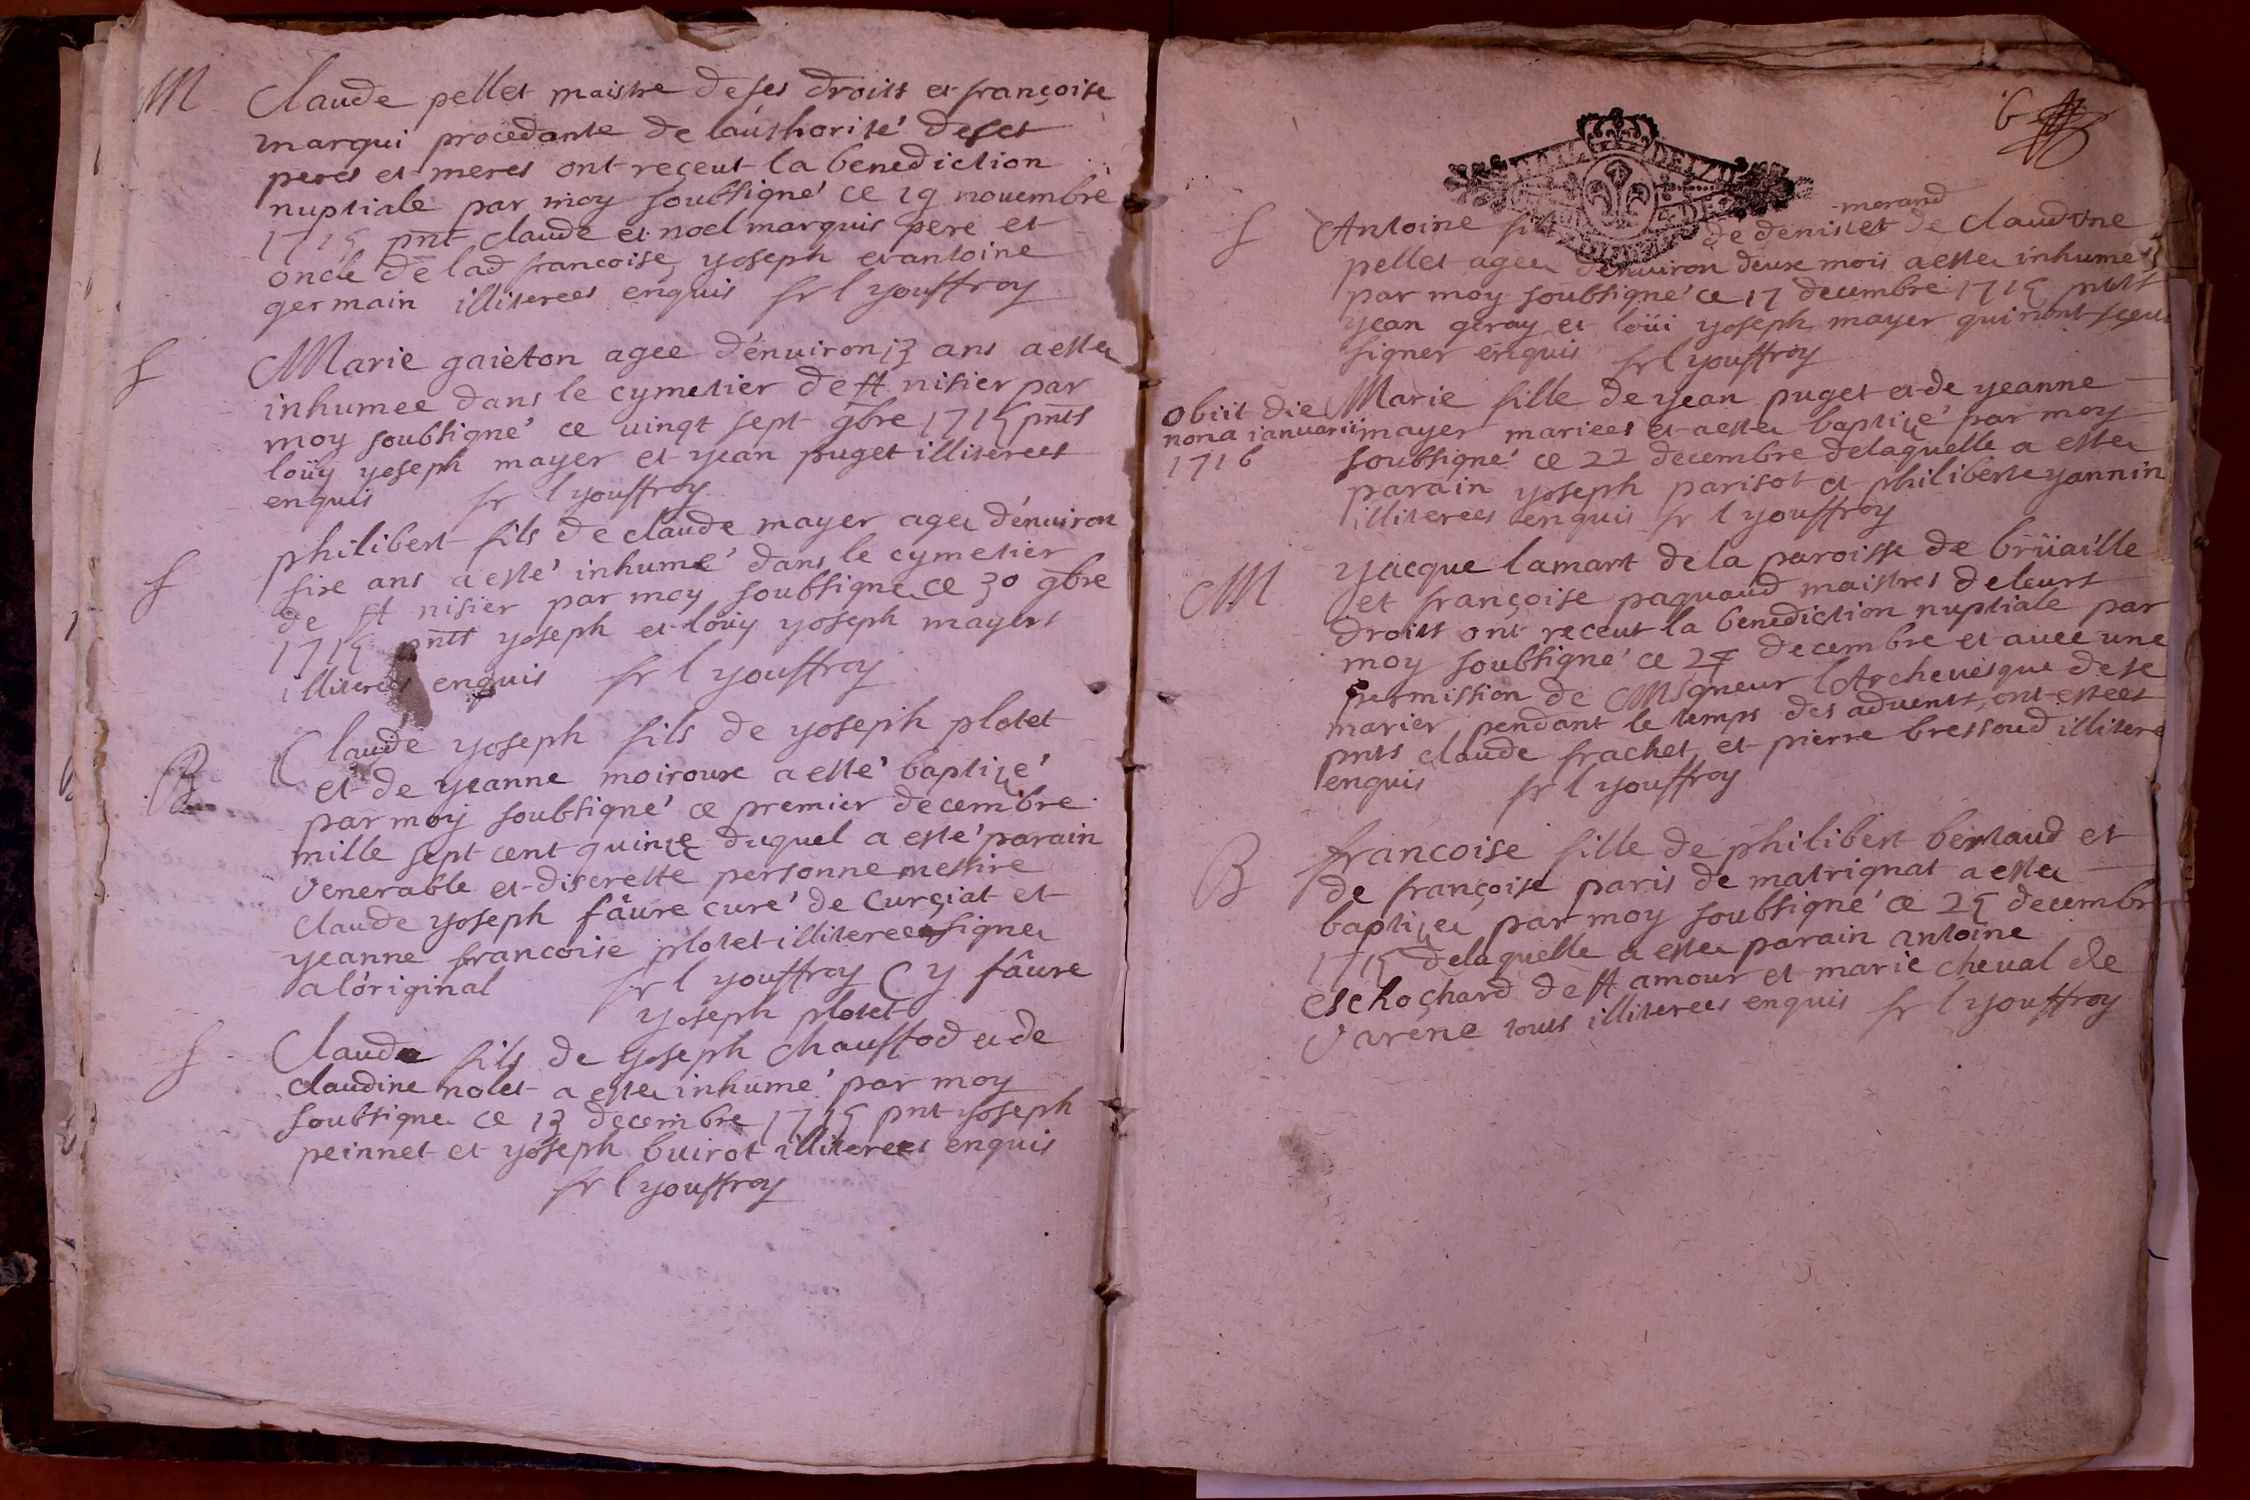 M
Claude pellet maistre de ses droits et françoise
marqui procedante de lauthorité deses
peres et meres ont reçeut la benediction
nuptiale par moy soubsigné ce 19 nouembre
1715 pnt claude et noel marquis pere et
oncle de lad francoise, yoseph et antoine
germain illiterees enquis fr l youffroy
f
Marie gaieton agee d'enuiron 13 ans a estee
inhumee dans le cymetier de st nisier par
moy soubsigné ce uingt sept 9bre 1715 pnts
loüy yoseph mayer et yean puget illiterees
enquis fr l youffroy
f
philibert fils de claude mayer agee d'enuiron
sixe ans a esté inhumé dans le cymetier
de st nisier par moy soubsigne ce 30 9bre
1715 pnts yoseph et loüy yoseph mayers
illiterees enquis fr l youffroy
B
Claude yoseph fils de yoseph plotet
et de yeanne moiroux a esté baptizé
par moy soubsigné ce premier decembre
mille sept cent quinze duquel a esté parain
venerable et discrette personne messire
claude yoseph fâure curé de Curçiat et
yeanne francoise plotet illiteree signee
a l'original fr l youffroy C y fâure
yoseph plotet
f
Claude fils de yoseph chaussod et de
claudine nolet a estee inhumé par moy
soubsigne ce 13 decembre 1715 pnt yoseph
peinnet et yoseph buirot illiterees enquis
fr l youffroy
6
f
-morand
Antoine fils de denis et de claudine
pellet agee d'enuiron deux mois a estee inhumee
par moy soubsigné ce 17 decembre 1715 pnts
yean geray et loüi yoseph mayer qui nont sçeu
signer enquis fr l youffroy
obiit die
nona ianuarii
1716
Marie fille de yean puget et de yeanne
mayer mariees et a estee baptizé par moy
soubsigné ce 22 decembre delaquelle a estee
parain yoseph parisot et philiberte yannin
illiterees enquis fr l youffroy
M
yacque lamart de la paroisse de brüaille
et françoise paquaud maistres deleurs
droits ont receut la benediction nuptiale par
moy soubsigné ce 24 decembre et auec une
permission de Msgneur l'Archeuesque de se
marier pendant le temps des aduents, ont estees
pnts claude frachet, et pierre bressoud illitere
enquis fr l youffroy
B
francoise fille de philibert bertaud et
de françoise paris de matrignat a estee
baptizee par moy soubsigné ce 25 decembre
1715 delaquelle a estee parain antoine
eschochard de st amour et marie cheual de
varene touts illiterees enquis fr l youffroy